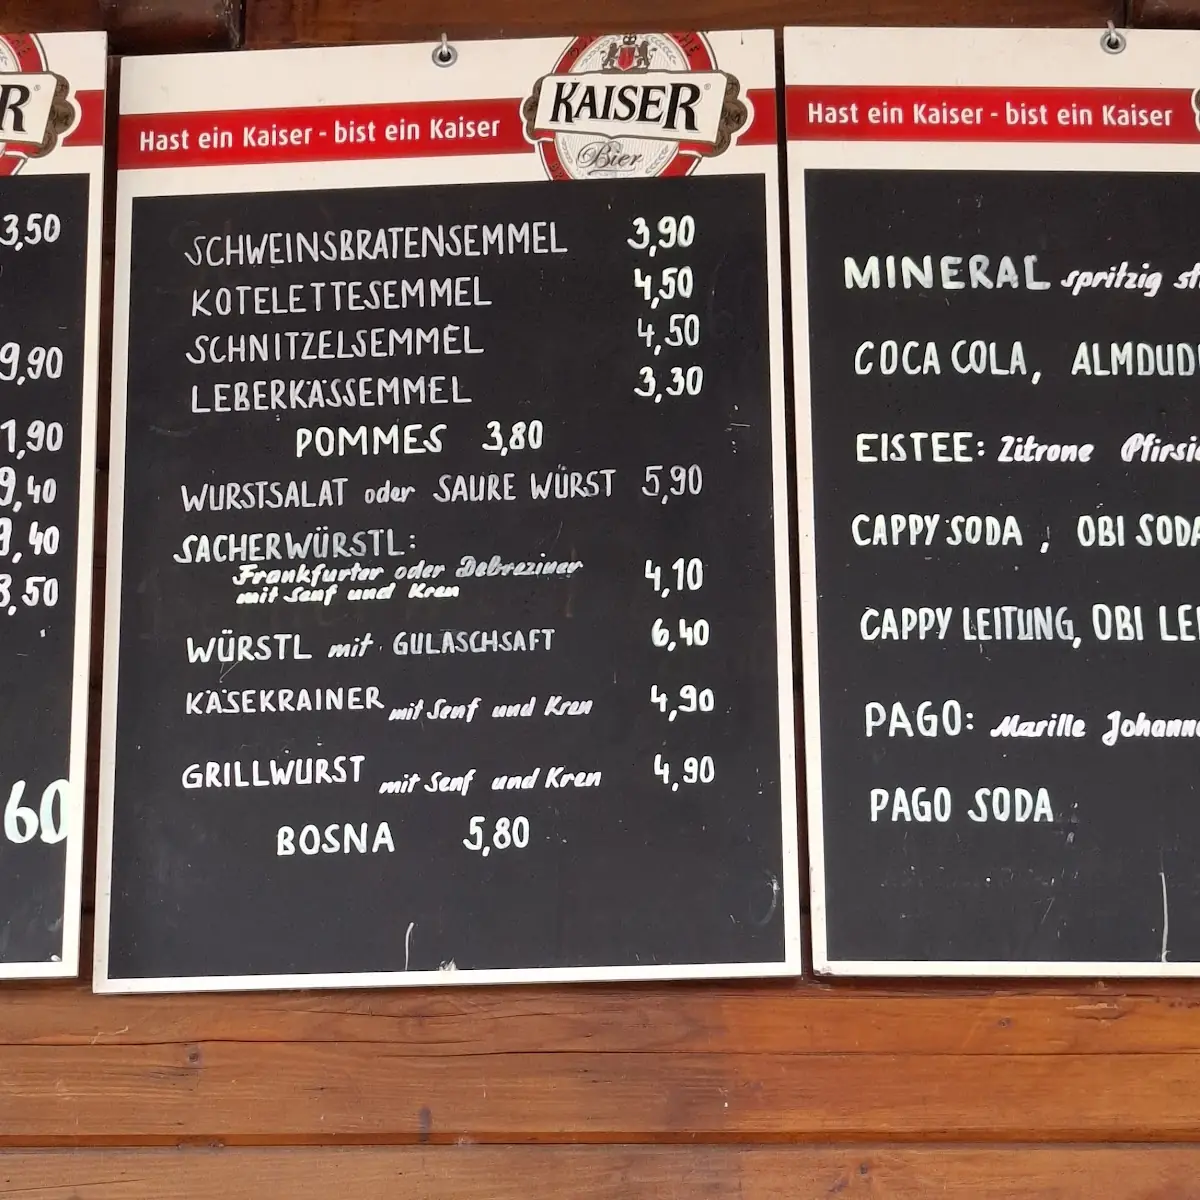 R
3,50
9,90
1,90
9,40
9,40
8,50
60
Hast ein Kaiser - bist ein Kaiser
KAISER
Bier
SCHWEINSBRATENSEMMEL 3,90
KOTELETTESEMMEL 4,50
SCHNITZELSEMMEL 4,50
LEBERKÄSSEMMEL 3,30
POMMES 3,80
WURSTSALAT oder SAURE WÜRST 5,90
SACHERWÜRSTL:
Frankfurter oder Debreziner
mit Senf und Kren 4,10
WÜRSTL mit GULASCHSAFT 6,40
KÄSEKRAINER mit Senf und Kren 4,90
GRILLWURST mit Senf und Kren 4,90
BOSNA 5,80
Hast ein Kaiser - bist ein Kaiser
MINERAL spritzig st
COCA COLA, ALMDUD
EISTEE: Zitrone Pfirsi
CAPPY SODA, OBI SODA
CAPPY LEITUNG, OBI LEI
PAGO: Marille Johann
PAGO SODA